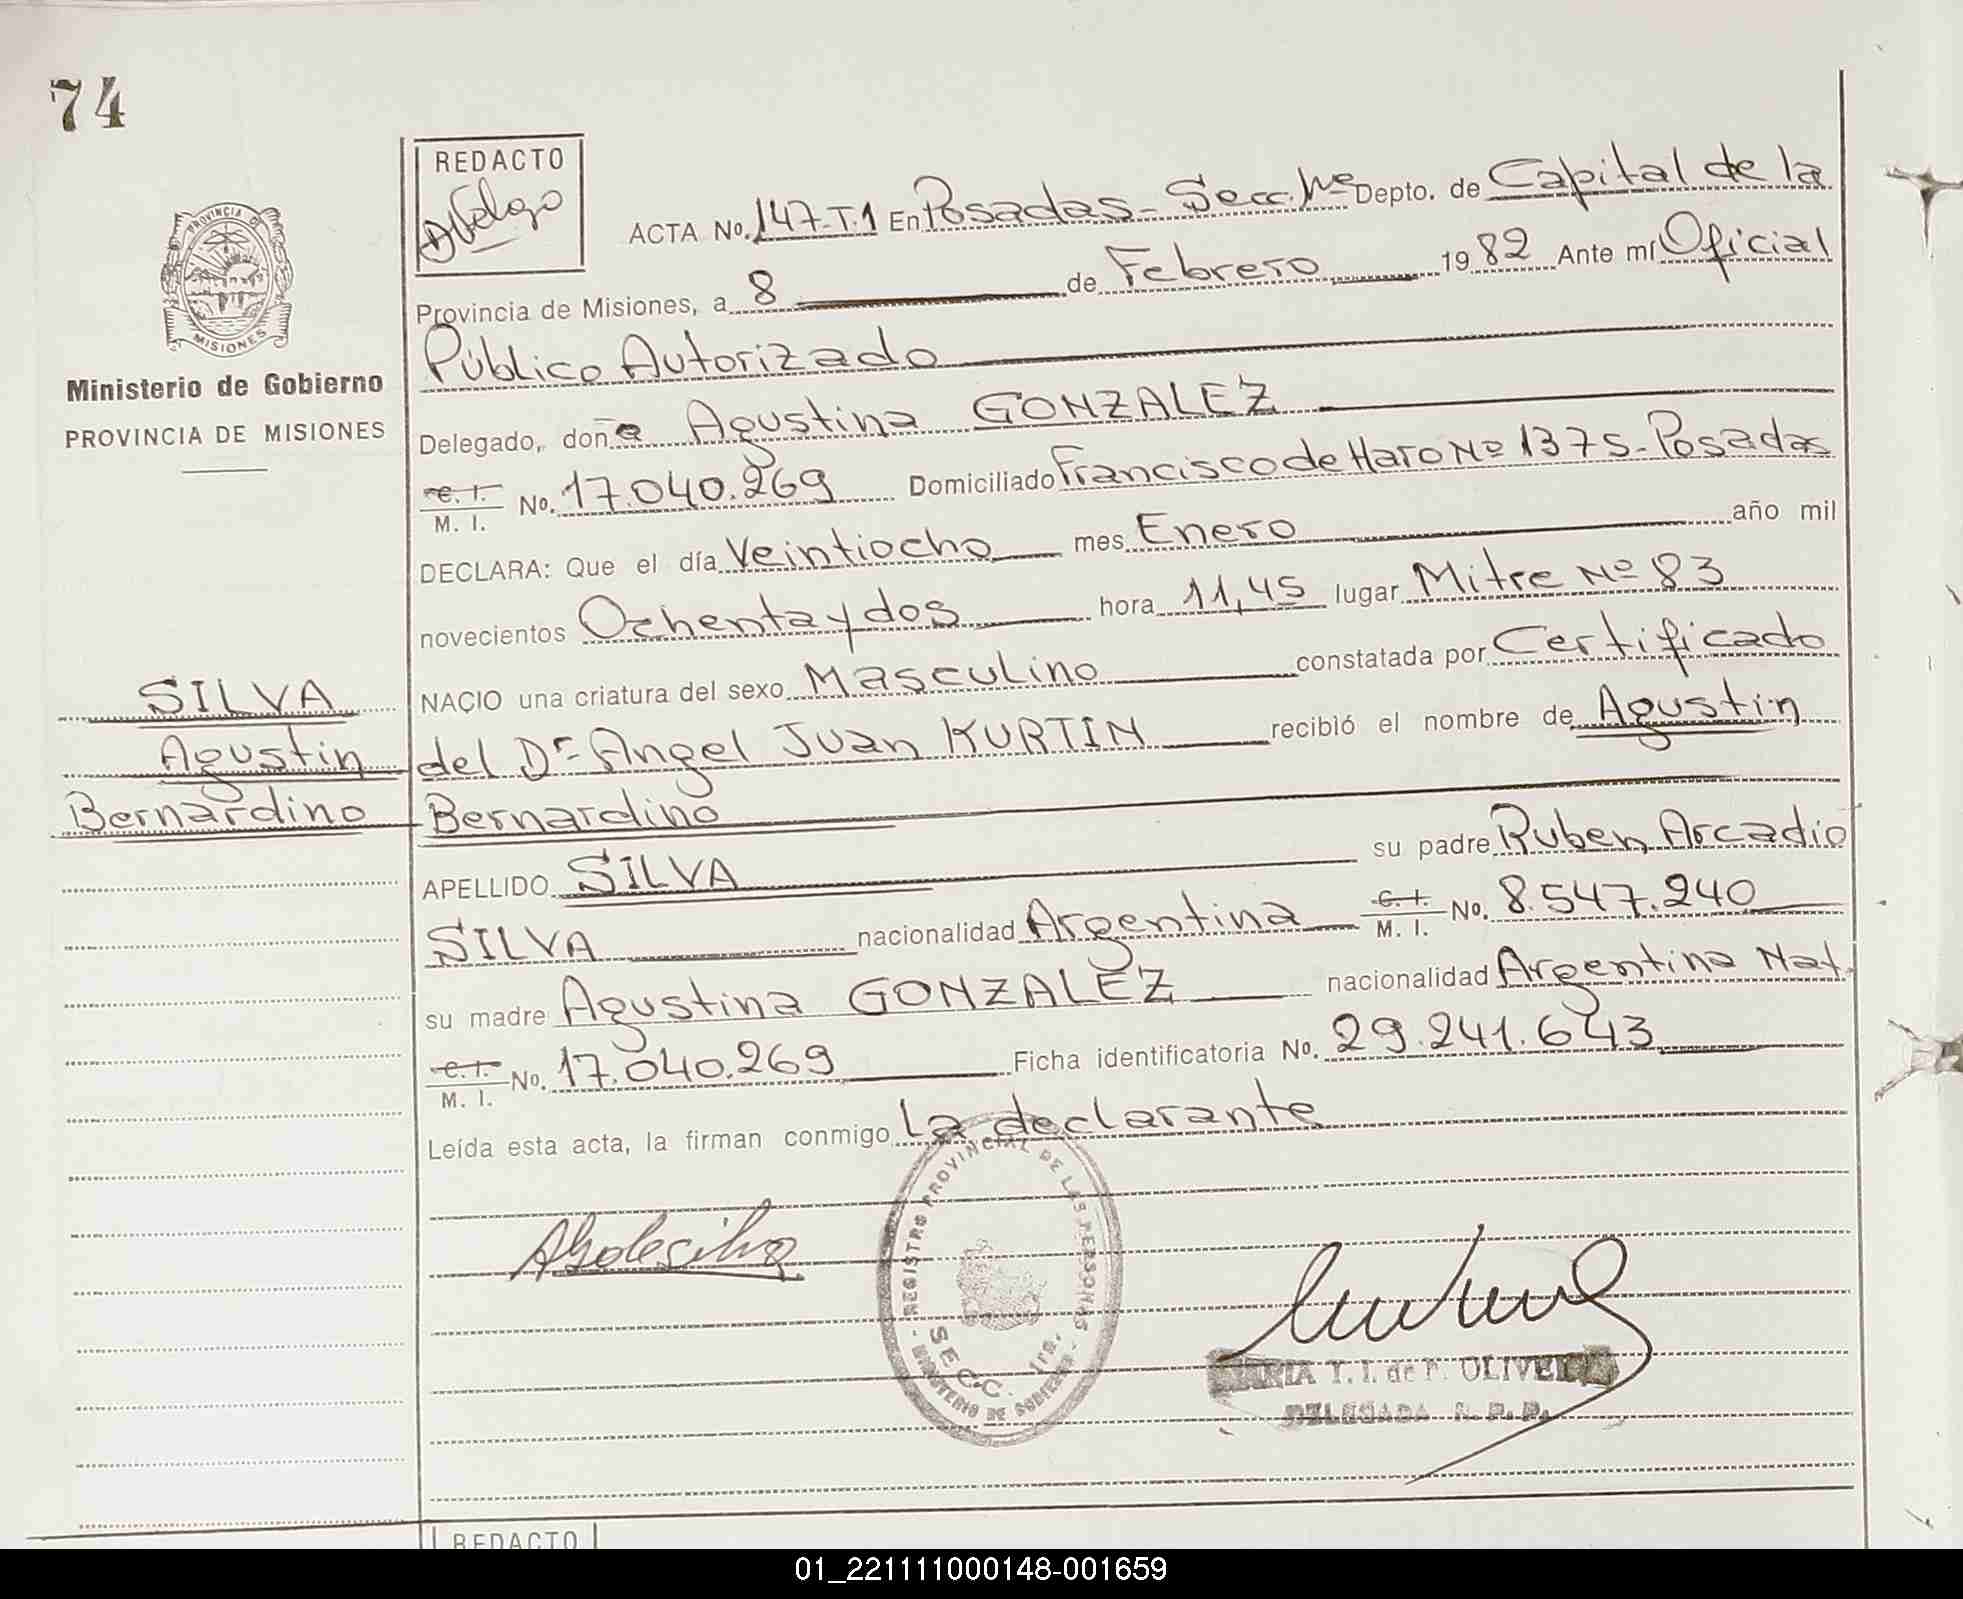 74
REDACTO
PROVINCIA D
MISIONES
Ministerio de Gobierno
PROVINCIA DE MISIONES
ACTA No. 147-T.1 En Posadas - Secc. 1ra Depto. de Capital de la
Provincia de Misiones, a 8 de Febrero 1982 Ante mí Oficial
Público Autorizado
Delegado, don a Agustina GONZALEZ
C. I. M. I. No. 17.040.269 Domiciliado Francisco de Haro Nº 1375 - Posadas
DECLARA: Que el día Veintiocho mes Enero año mil
novecientos Ochenta y dos hora 11,45 lugar Mitre Nº 83
NACIO una criatura del sexo Masculino constatada por Certificado
del Dr Angel Juan KURTIN recibió el nombre de Agustin
Bernardino
APELLIDO SILVA su padre Ruben Arcadio
SILVA nacionalidad Argentina C. I. M. I. No. 8.547.240
su madre Agustina GONZALEZ nacionalidad Argentina Nat.
C. I. M. I. No. 17.040.269 Ficha identificatoria No. 29.241.643
Leída esta acta, la firman conmigo la declarante
SILVA
Agustin
Bernardino
REGISTRO PROVINCIAL DE LAS PERSONAS
SECC. 1ra.
MINISTERIO DE GOBIERNO
MARIA T. I. de F. OLIVEIRA
DELEGADA R. P. P.
REDACTO
01_221111000148-001659